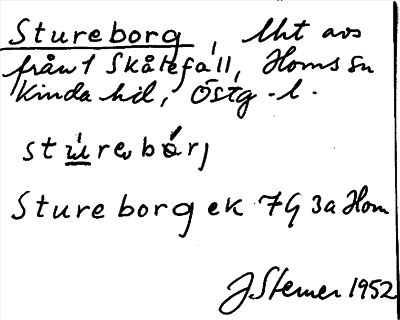 Stureborg, lht avs
från 1 Skåtefall, Horns sn
Kinda hd, Östg. l.
Stureborg ek 7G 3a Horn
J. Sterner 1952